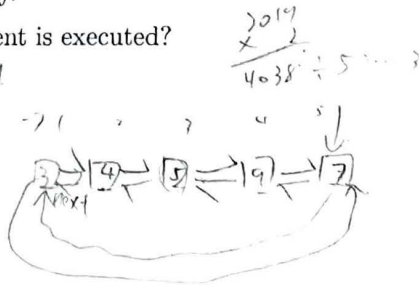 ent is executed?
2019
× 2
4038 ÷ 5 ... 3
→ 1 2 3 4 5
3 4 5 9 7
next